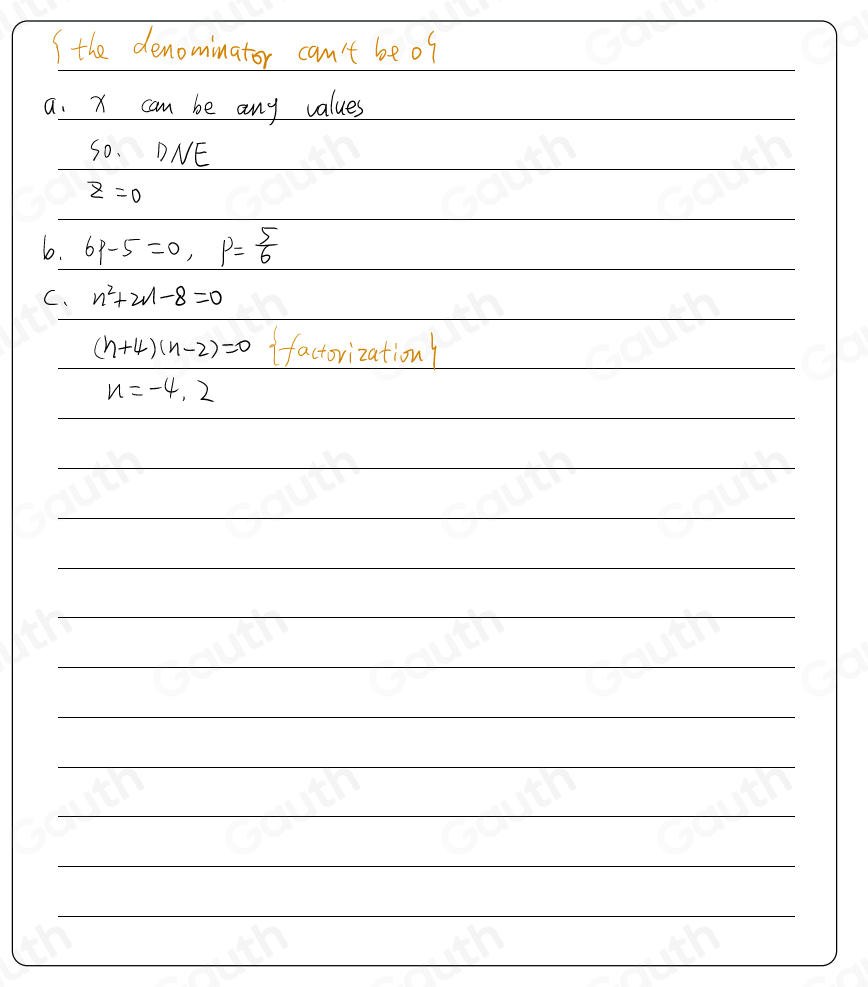 {the denominator can't be 0}
a. x can be any values
so. DNE
z = 0
b. 6p-5=0, p=5/6
c. n²+2n-8=0
(n+4)(n-2)=0 {factorization}
n=-4, 2